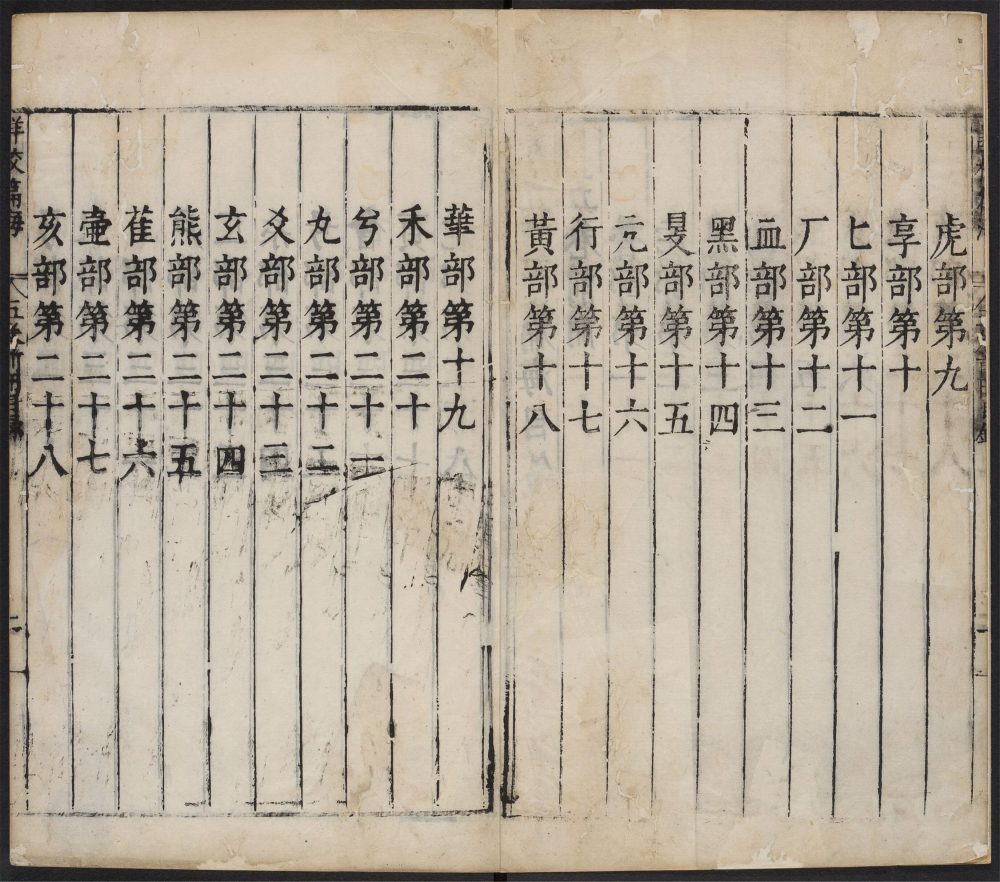 虎部第九
享部第十
匕部第十一
厂部第十二
血部第十三
黑部第十四
旻部第十五
亢部第十六
行部第十七
黃部第十八
華部第十九
禾部第二十
兮部第二十一
丸部第二十二
爻部第二十三
玄部第二十四
熊部第二十五
萑部第二十六
壷部第二十七
亥部第二十八
詳校篇海